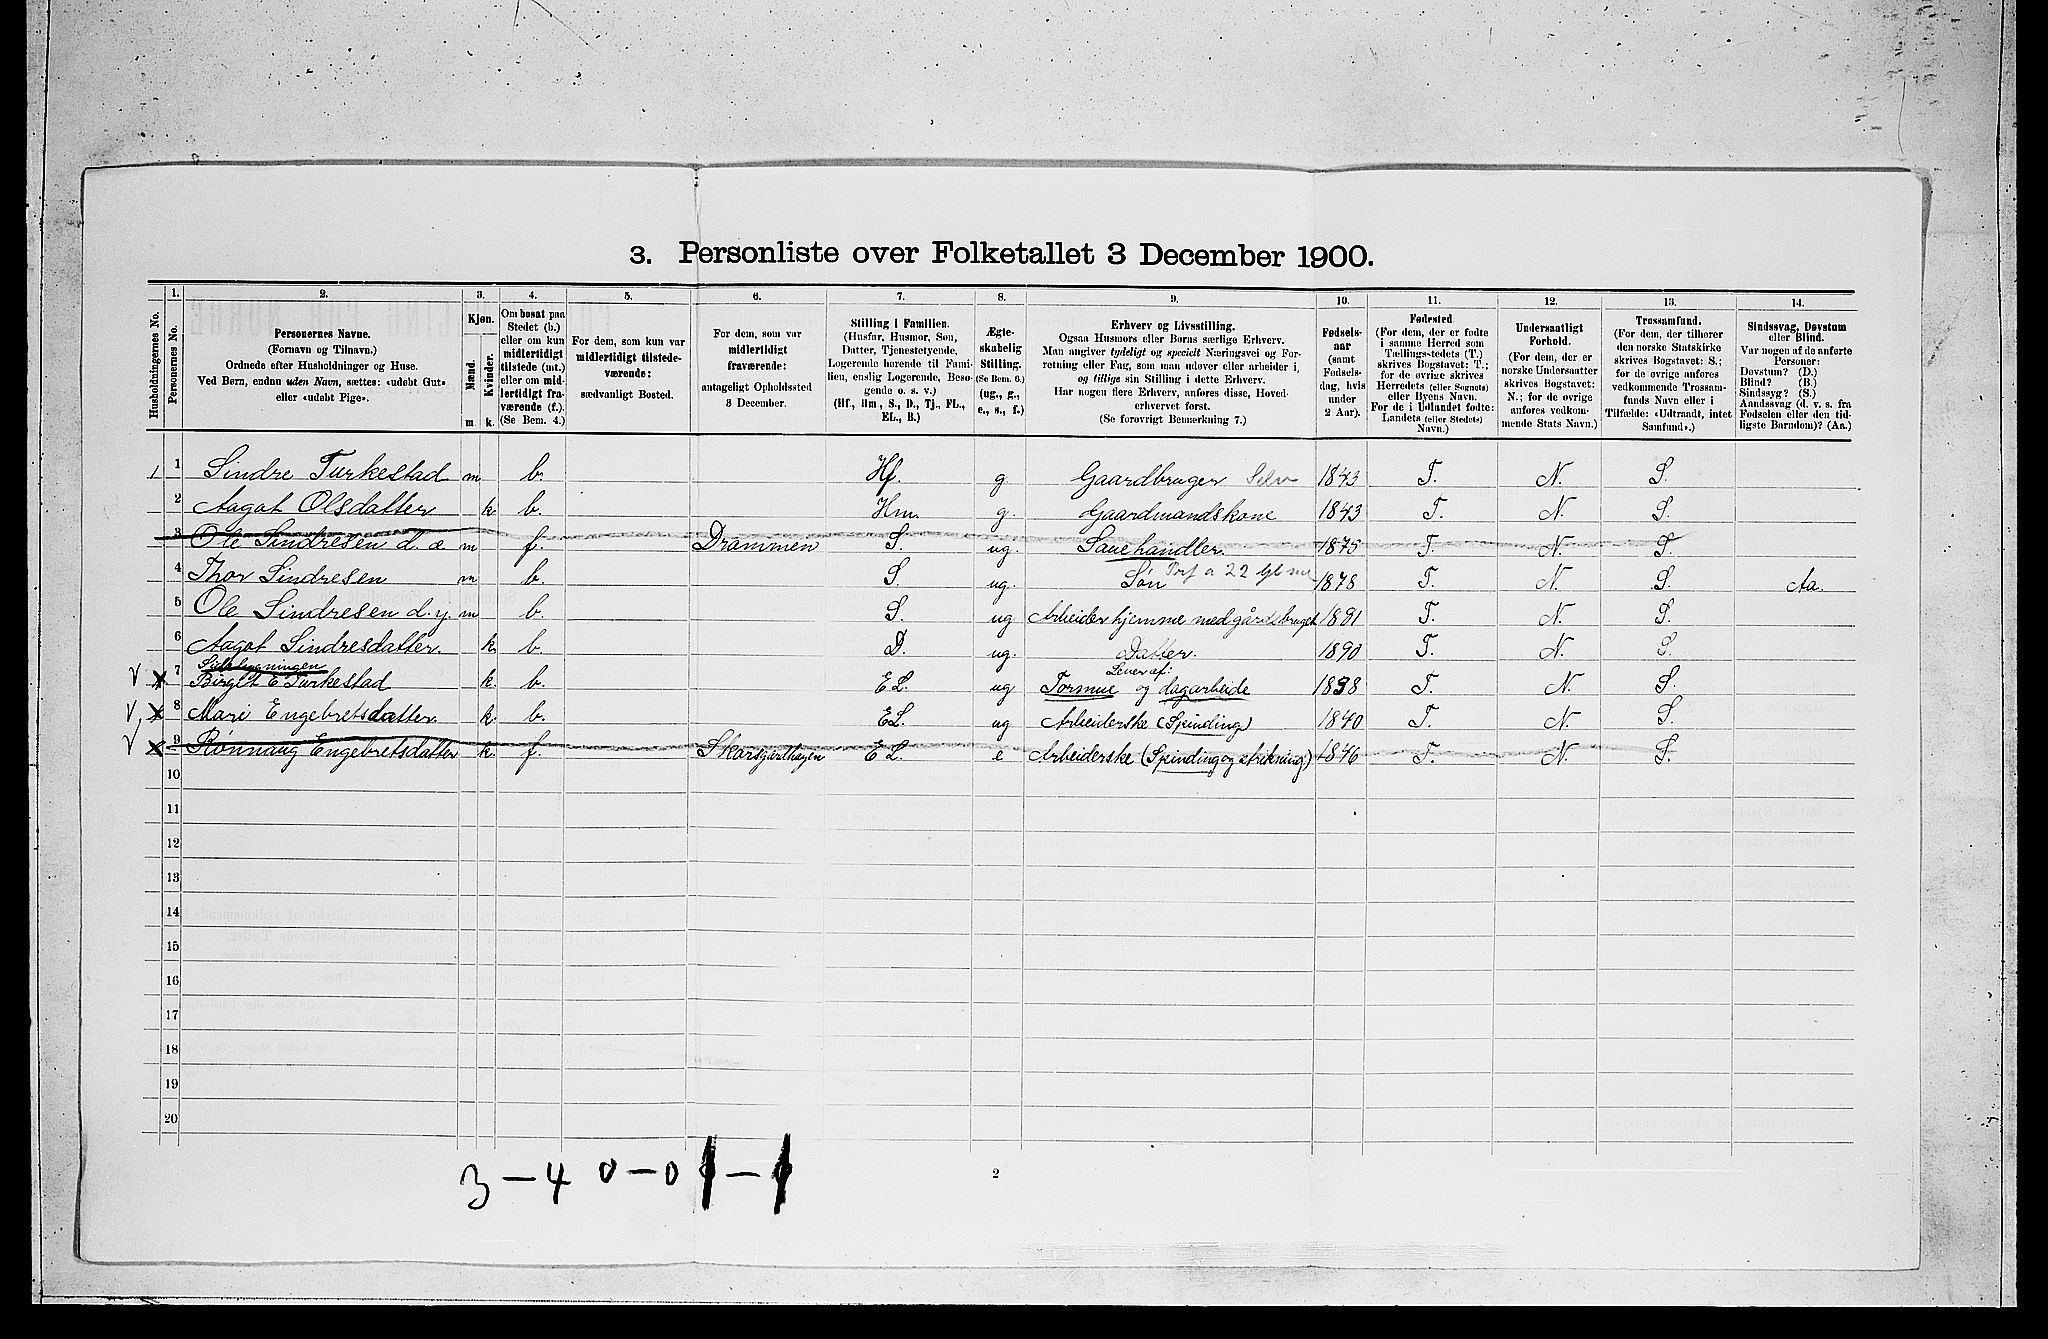 3. Personliste over Folketallet 3 December 1900.
1. 2. 3. 4. 5. 6. 7. 8. 9. 10. 11. 12. 13. 14.
Husholdningernes No.
Personernes No.
Personernes Navne.
(Fornavn og Tilnavn.)
Ordnede efter Husholdninger og Huse.
Ved Børn, endnu uden Navn, sættes: «udøbt Gut»
eller «udøbt Pige».
Kjøn.
Mænd.
Kvinder.
m k.
Om bosat paa
Stedet (b.)
eller om kun
midlertidigt
tilstede (mt.)
eller om mid-
lertidigt fra-
værende (f.)
(Se Bem. 4.)
For dem, som kun var
midlertidigt tilstede-
værende:
sædvanligt Bosted.
For dem, som var
midlertidigt
fraværende:
antageligt Opholdssted
3 December.
Stilling i Familien.
(Husfar, Husmor, Søn,
Datter, Tjenestetyende,
Logerende hørende til Fami-
lien, enslig Logerende, Besø-
gende o. s. v.)
(Hf., Hm., S., D., Tj., FL.,
EL., B.)
Ægte-
skabelig
Stilling.
(Se Bem. 6.)
(ug., g.,
e., s., f.)
Erhverv og Livsstilling.
Ogsaa Husmors eller Børns særlige Erhverv.
Man angiver tydeligt og specielt Næringsvei og For-
retning eller Fag, som man udøver eller arbeider i,
og tillige sin Stilling i dette Erhverv.
Har nogen flere Erhverv, anføres disse, Hoved-
erhvervet først.
(Se forøvrigt Bemærkning 7.)
Fødsels-
aar
(samt
Fødsels-
dag, hvis
under
2 Aar).
Fødested
(For dem, der er fødte
i samme Herred som
Tællings-tedets (T.)
skrives Bogstavet: T.;
for de øvrige skrives
Herredets (eller Sognets)
eller Byens Navn.
For de i Udlandet fødte:
Landets (eller Stedets)
Navn.)
Undersaatligt
Forhold.
(For dem, der er
norske Undersaatter
skrives Bogstavet:
N.; for de øvrige
anføres vedkom-
mende Stats Navn.)
Trossamfund.
(For dem, der tilhører
den norske Statskirke
skrives Bogstavet: S.;
for de øvrige anføres
vedkommende Trossam-
funds Navn eller i
Tilfælde: «Udtraadt, intet
Samfund».)
Sindssvag, Døvstum
eller Blind.
Var nogen af de anførte
Personer:
Døvstum? (D.)
Blind? (B.)
Sindssyg? (S.)
Aandssvag (d. v. s. fra
Fødselen eller den tid-
ligste Barndom)? (Aa.)
1 1 Sindre Turkestad m b. Hf. g. Gaardbruger Selv 1843 T. N. S.
2 Aagot Olsdatter k b. Hm. g. Gaardmandskone 1843 T. N. S.
3 Ole Sindresen d. æ. m f. Drammen S. ug. Sauehandler. 1875 T. N. S.
4 Thor Sindresen m b. S. ug. Søn 1878 T. N. S. Aa.
5 Ole Sindresen d. y. m b. S. ug Arbeider hjemme med gårdsbruget 1881 T. N. S.
6 Aagot Sindresdatter. k. b. D. ug. Datter. 1890 T. N. S.
Sidebygningen
V x 7 Birgit E Turkestad k. b. EL. ug Lever af: Formue og dagarbeide 1838 T. N. S.
V, x 8 Mari Engebretsdatter k. b. EL. ug Arbeiderske (Spinding) 1840 T. N. S.
V x 9 Rønnaug Engebretsdatter k. f. Skarsgardhagen EL. e Arbeiderske (Spinding og strikning) 1846 T. N. S.
10
11
12
13
14
15
16
17
18
19
20
3 - 4 0 - 0 1 - 1
2